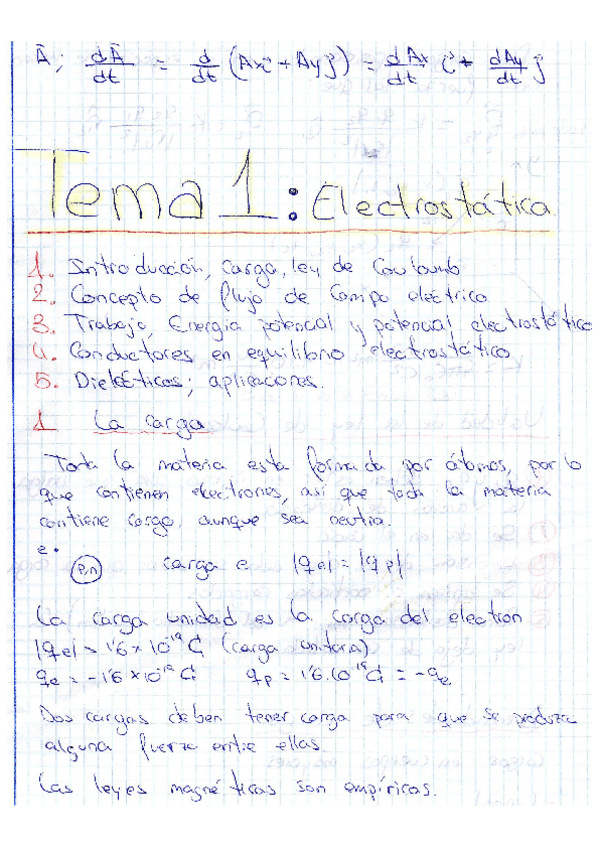 Ā; dĀ/dt = d/dt (Axi + Ayj) = dAx/dt i + dAy/dt j
Tema 1: Electrostática
1. Introducción, carga, ley de Coulomb
2. Concepto de flujo de campo eléctrico
3. Trabajo, Energía potencial y potencial electrostático
4. Conductores en equilibrio electrostático
5. Dieléctricos; aplicaciones.
1 La carga
Toda la materia esta formada por átomos, por lo
que contienen electrones, así que toda la materia
contiene carga, aunque sea neutra.
e.
pn carga e |qe| = |qp|
La carga unidad es la carga del electron
|qe| = 1'6 × 10^-19 C (carga unitaria)
qe = -1'6 × 10^-19 C qp = 1'6·10^-19 C = -qe
Dos cargas deben tener carga para que se produzca
alguna fuerza entre ellas.
Las leyes magnéticas son empíricas.